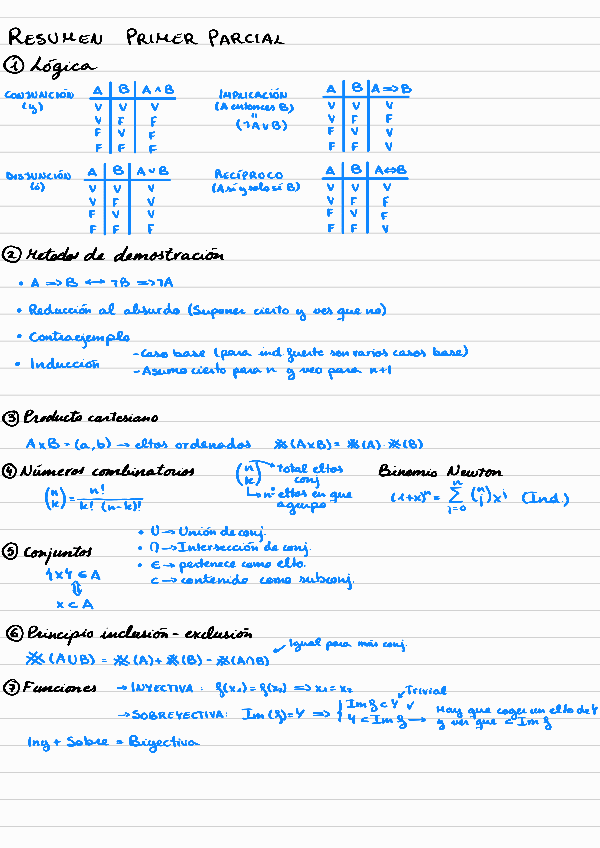 RESUMEN PRIMER PARCIAL
① Lógica
CONJUNCIÓN (y)
A B A∧B
V V V
V F F
F V F
F F F
IMPLICACIÓN
(A entonces B)
"
(¬A∨B)
A B A⇒B
V V V
V F F
F V V
F F V
DISYUNCIÓN (ó)
A B A∨B
V V V
V F V
F V V
F F F
RECÍPROCO
(A si y solo si B)
A B A⇔B
V V V
V F F
F V F
F F V
② Metodos de demostración
• A ⇒ B ↔ ¬B ⇒ ¬A
• Reducción al absurdo (Suponer cierto y ves que no)
• Contraejemplo
• Inducción
- Caso base (para ind. fuerte son varios casos base)
- Asumo cierto para n y veo para n+1
③ Producto cartesiano
A×B = (a,b) → eltos ordenados #(A×B) = #(A)·#(B)
④ Números combinatorios
(n k) = n! / k! (n-k)!
(n k) → total eltos conj
→ nº eltos en que agrupo
Binomio Newton
(1+x)ⁿ = Σ i=0 n (n i) xⁱ (Ind.)
⑤ Conjuntos
{x} ∈ A
⇕
x ⊂ A
• ∪ → Unión de conj.
• ∩ → Intersección de conj.
• ∈ → pertenece como elto.
⊂ → contenido como subconj.
⑥ Principio inclusión - exclusión
#(A∪B) = #(A) + #(B) - #(A∩B)
Igual para más conj.
⑦ Funciones
→ INYECTIVA: f(x₁) = f(x₂) ⇒ x₁ = x₂
→ SOBREYECTIVA: Im(f) = Y ⇒ { Im f ⊂ Y ✓ Trivial
Y ⊂ Im f → Hay que coger un elto de Y y ver que ⊂ Im f
Iny + Sobre = Biyectiva